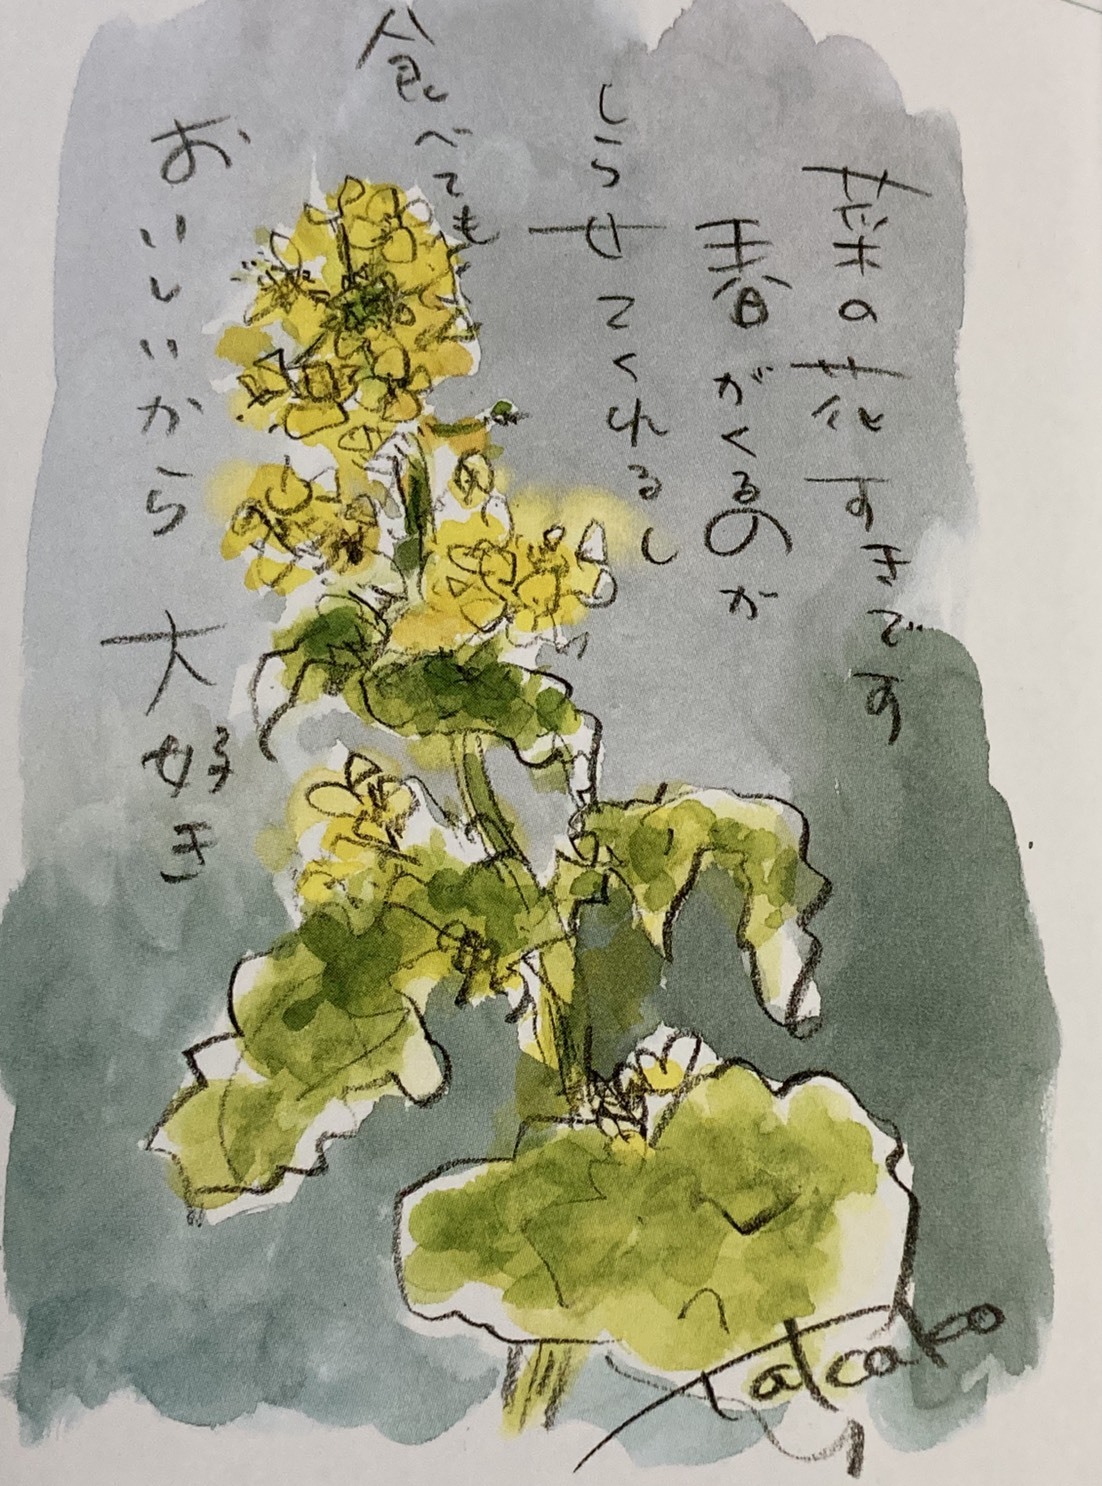 菜の花すきです
春がくるのが
しらせてくれるし
食べても
おいしいから 大好き